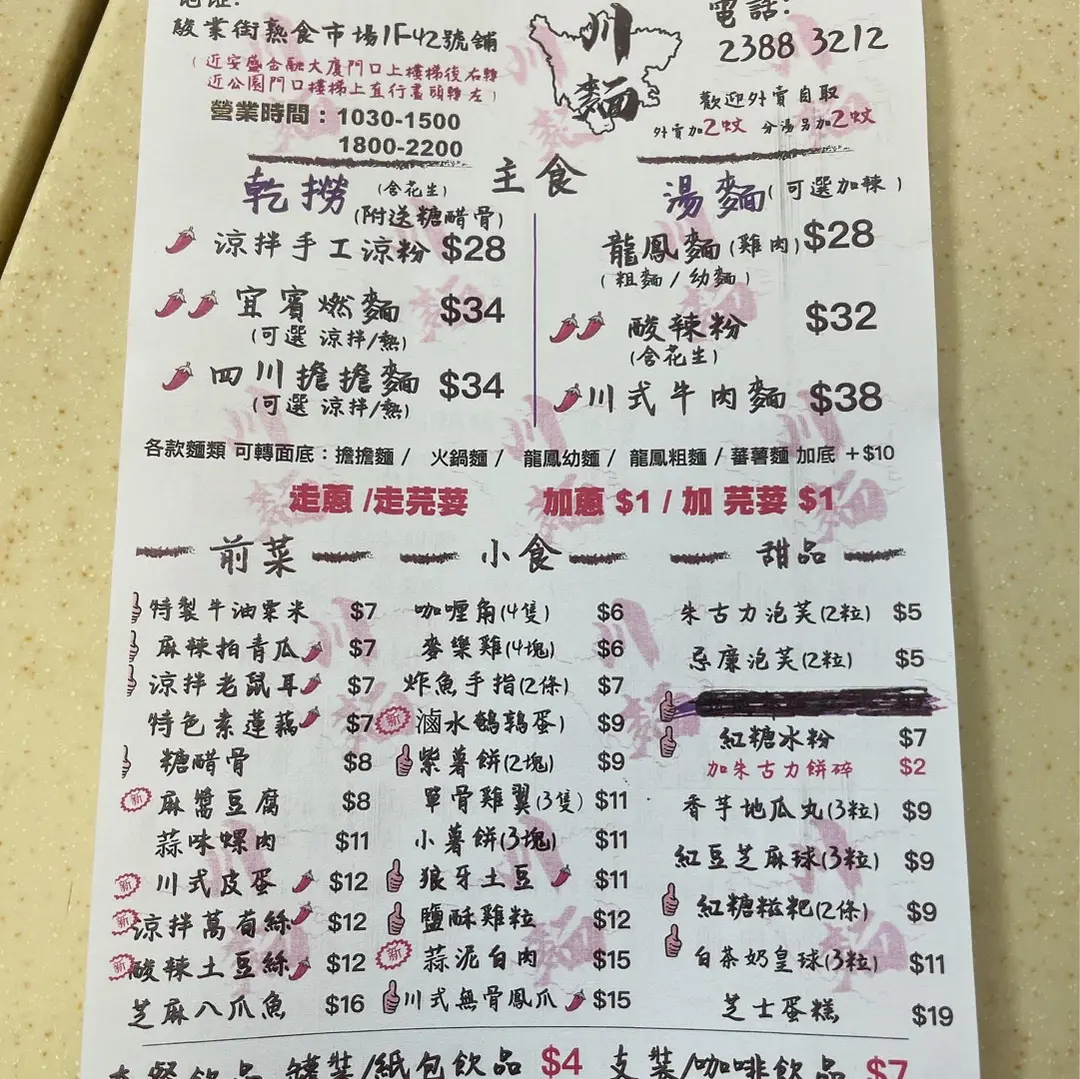 地址:
駿業街熟食市場1F42號舖
(近安盛金融大廈門口上樓梯後右轉
近公園門口樓梯上直行盡頭轉左)
營業時間：1030-1500
1800-2200
川麵
電話:
2388 3212
歡迎外賣自取
外賣加2蚊 分湯另加2蚊
主食
乾撈 (含花生)
(附送糖醋骨)
涼拌手工涼粉 $28
宜賓燃麵 $34
(可選 涼拌/熱)
四川擔擔麵 $34
(可選 涼拌/熱)
湯麵(可選加辣)
龍鳳麵(雞肉) $28
(粗麵/幼麵)
酸辣粉 $32
(含花生)
川式牛肉麵 $38
各款麵類 可轉面底：擔擔麵 / 火鍋麵 / 龍鳳幼麵 / 龍鳳粗麵 / 蕃薯麵 加底 +$10
走蔥 /走芫荽 加蔥 $1 / 加 芫荽 $1
前菜
特製牛油粟米 $7
麻辣拍青瓜 $7
涼拌老鼠耳 $7
特色素蓮藕 $7
糖醋骨 $8
新 麻醬豆腐 $8
蒜味螺肉 $11
新 川式皮蛋 $12
新 涼拌萵荀絲 $12
新 酸辣土豆絲 $12
芝麻八爪魚 $16
小食
咖喱角(4隻) $6
麥樂雞(4塊) $6
炸魚手指(2條) $7
新 滷水鵪鶉蛋) $9
紫薯餅(2塊) $9
單骨雞翼(3隻) $11
小薯餅(3塊) $11
狼牙土豆 $11
鹽酥雞粒 $12
新 蒜泥白肉 $15
川式無骨鳳爪 $15
甜品
朱古力泡芙(2粒) $5
忌廉泡芙(2粒) $5
紅糖冰粉 $7
加朱古力餅碎 $2
香芋地瓜丸(3粒) $9
紅豆芝麻球(3粒) $9
紅糖糍粑(2條) $9
白茶奶皇球(3粒) $11
芝士蛋糕 $19
飲品 罐裝/紙包飲品 $4 支裝/咖啡飲品 $7